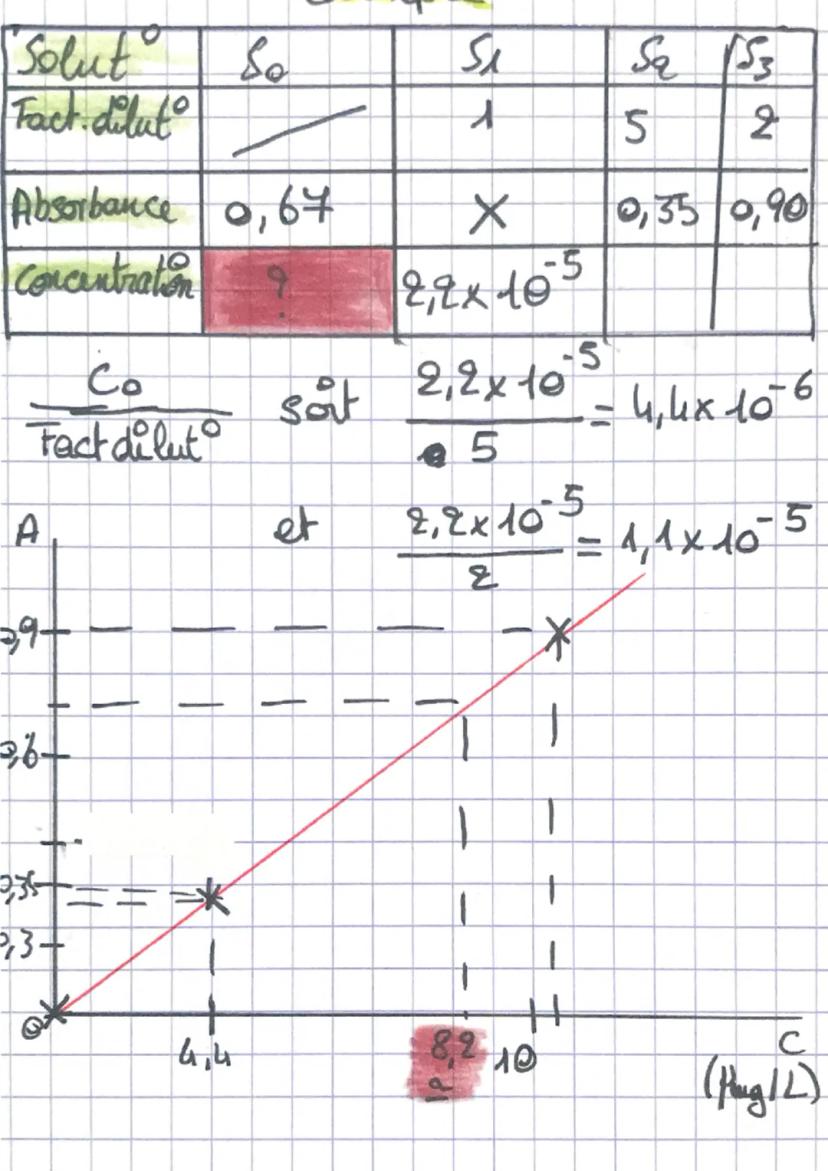 Solut° S0 S1 S2 S3
Fact. dilut° / 1 5 2
Absorbance 0,67 X 0,35 0,90
Concentration ? 2,2x10^-5
C0 / Fact dilut° soit 2,2x10^-5 / 5 = 4,4x10^-6
A et 2,2x10^-5 / 2 = 1,1x10^-5
0,9
0,6
0,35
0,3
0
4,4 8,2 10 C
?